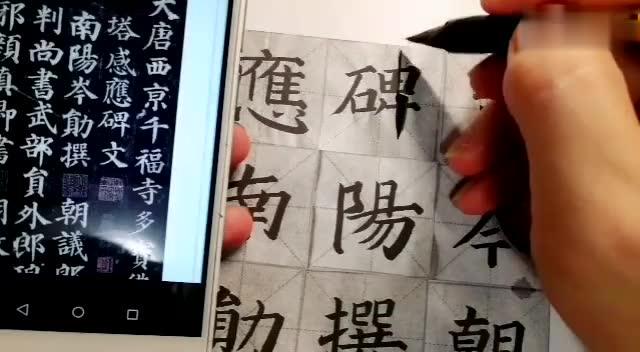 大唐西京千福寺多寶
塔感應碑文
南陽岑勛撰 朝議郎
判尚書武部員外郎
邪顏真卿書
應碑
南陽
勛撰朝